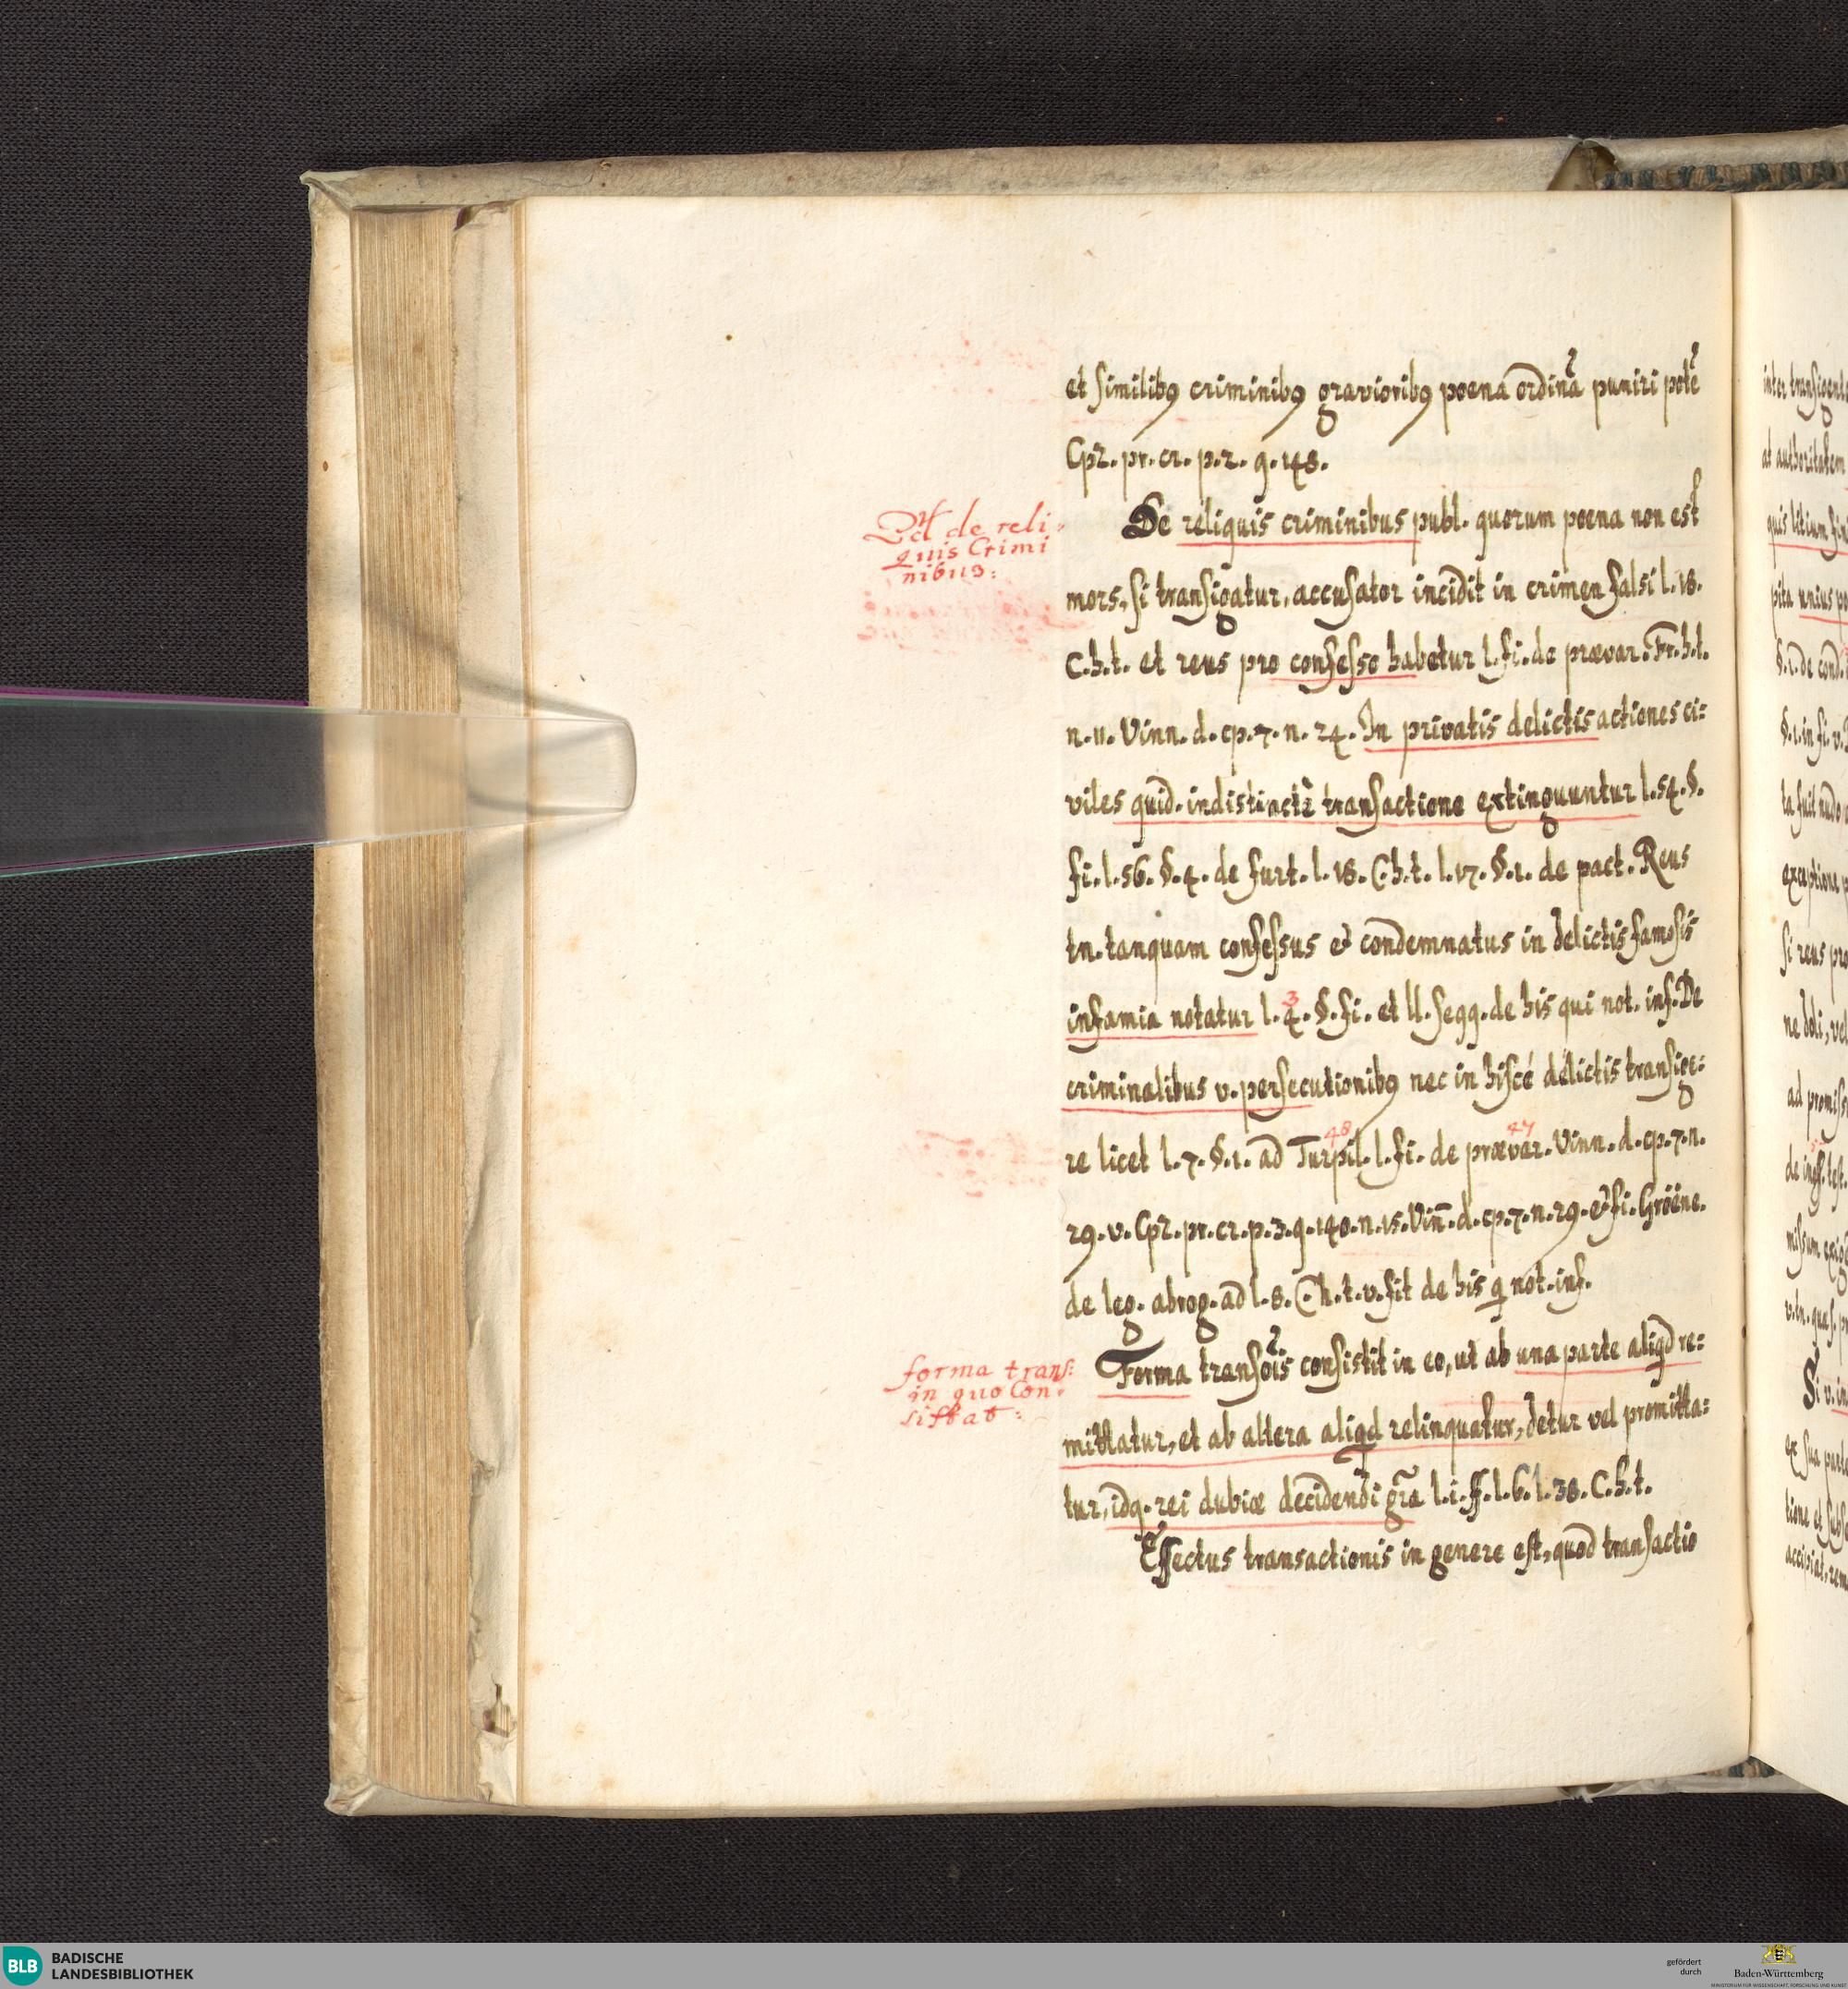 et similibꝯ criminibꝯ gravioribꝯ poena ordina᷒ puniri pote᷒
Cpz. pr. cr. p. 2. q. 148.
Qd de reli-
quis Crimi
nibus:
De reliquis criminibus publ. quorum poena non est
mors, si transigatur, accusator incidit in crimen falsi l. 18.
C. h. t. et reus pro confesso habetur l. fi. de prævar. Fr. h. t.
n. 11. Vinn. d. cp. 7. n. 24. In privatis delictis actiones ci=
viles quid. indistinctè transactione extinguuntur l. 54. §.
fi. l. 56. §. 4. de furt. l. 18. C. h. t. l. 17. §. 1. de pact. Reus
tn. tanquam confessus et condemnatus in delictis famosis
3
infamia notatur l. 4. §. fi. et ll. seqq. de his qui not. inf. De
criminalibus v. persecutionibꝯ nec in hisce delictis transige=
48 47
re licet l. 7. §. 1. ad Turpil. l. fi. de prævar. Vinn. d. cp. 7. n.
29. v. Cpz. pr. cr. p. 3. q. 148. n. 15. Vin̄. d. cp. 7. n. 29. et fi. Gröène.
de leg. abrog. ad l. 8. C. h. t. v. fit de his q not. inf.
forma trans:
in quo Con-
sistat:
Forma transois consistit in eo, ut ab una parte aliqd re=
mittatur, et ab altera aliqd relinquatur, detur vel promitta=
tur, idq. rei dubiæ decidendi gr̃a l. 1. ff. l. 6. l. 38. C. h. t.
Effectus transactionis in genere est, quod transactio
BLB BADISCHE
LANDESBIBLIOTHEK
gefördert
durch
Baden-Württemberg
MINISTERIUM FÜR WISSENSCHAFT, FORSCHUNG UND KUNST